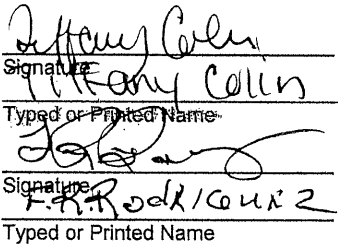 Tiffany Colin
Signature
Tiffany Colin
Typed or Printed Name
Signature
F.R. Rodriguez
Typed or Printed Name